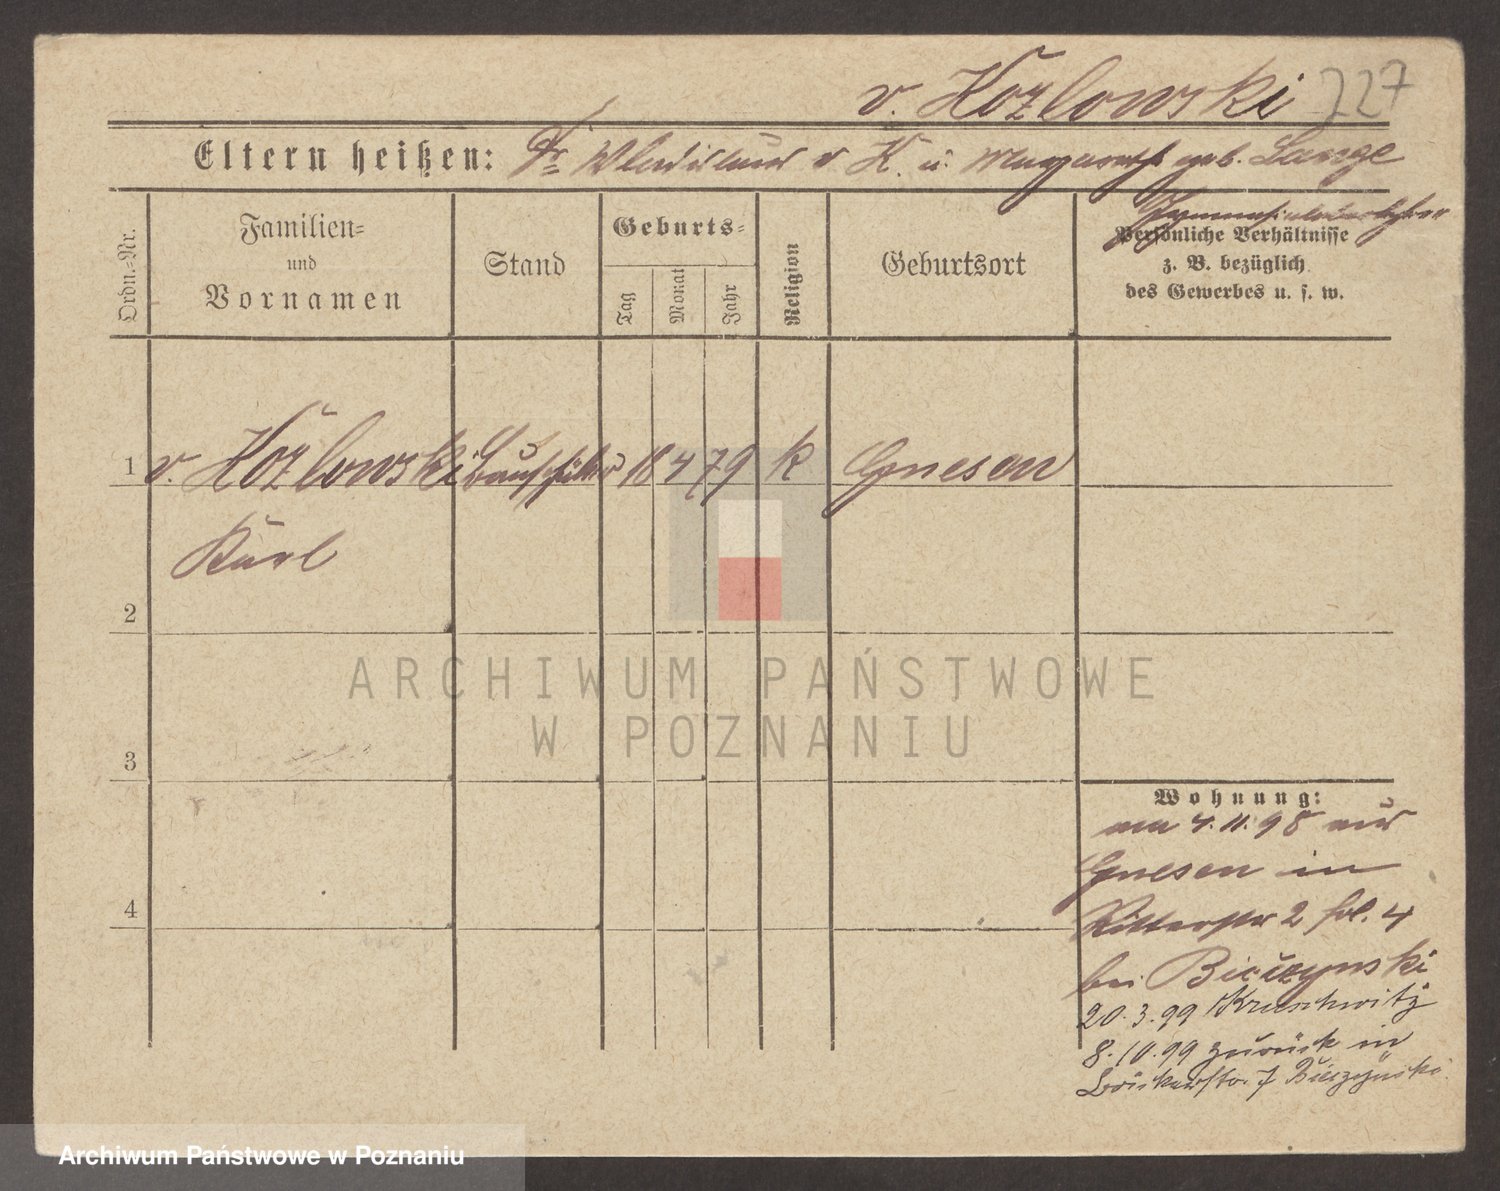 v. Kozlowski 727
Eltern heißen: Dr Wladislaus v K. u. Margareth geb. Lange
Gymnasialoberlehrer
Ordn.-Nr.
Familien-
und
Vornamen
Stand
Geburts-
Tag
Monat
Jahr
Religion
Geburtsort
Persönliche Verhältnisse
z. B. bezüglich
des Gewerbes u. s. w.
1 v. Kozlowski Bauschüler 18 4 79 k Gnesen
Karl
2
3
4
ARCHIWUM PAŃSTWOWE
W POZNANIU
Wohnung:
am 4. 11. 98 aus
Gnesen in
Ritterstr 2 fol. 4
bei Biczynski
20. 3. 99 Kruschwitz
8. 10. 99 zurück in
Bäckerstr. 7 Biczynski
Archiwum Państwowe w Poznaniu